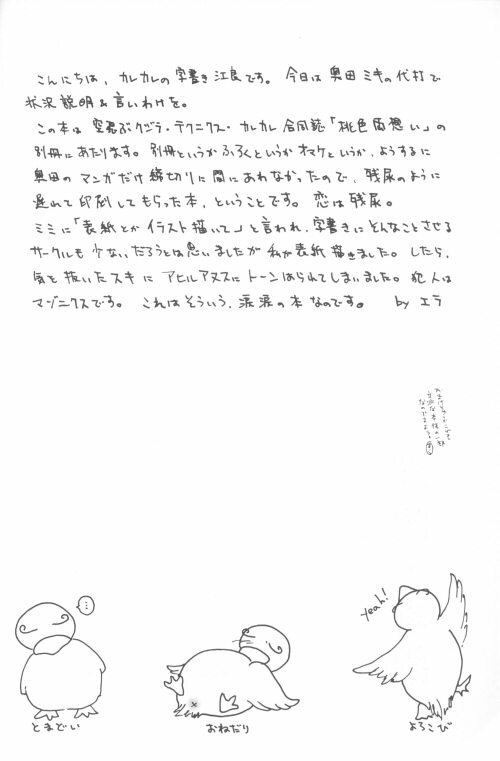 こんにちは、カレカレの字書き江良です。今日は奥田ミキの代打で
状況説明&言いわけを。
この本は空飛ぶクジラ・テクニクス・カレカレ合同誌「桃色片想い」の
別冊にあたります。別冊というかふろくというかオマケというか、ようするに
奥田のマンガだけ締切りに間にあわなかったので、残尿のように
遅れて印刷してもらった本、ということです。恋は残尿。
ミミに「表紙とかイラスト描いて」と言われ、字書きにどんなことさせる
サークルも少ないだろうとは思いましたが私が表紙描きました。したら、
気を抜いたスキにアヒルアヌスにトーンはられてしまいました。犯人は
マゾニクスです。これはそういう、涙涙の本なのです。 by エラ
...
Yeah!
とまどい
おねだり
よろこび